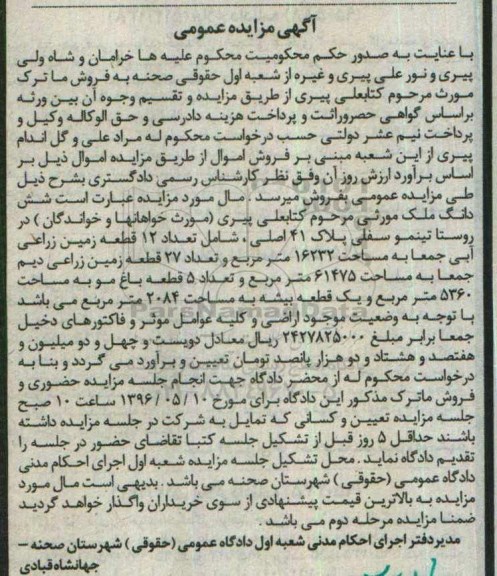 آگهی مزایده عمومی
با عنایت به صدور حکم محکومیت محکوم علیه ها خرامان و شاه ولی
پیری و نور علی پیری و غیره از شعبه اول حقوقی صحنه به فروش ما ترک
مورث مرحوم کتابعلی پیری از طریق مزایده و تقسیم وجوه آن بین ورثه
براساس گواهی حصروراثت و پرداخت هزینه دادرسی و حق الوکاله وکیل و
پرداخت نیم عشر دولتی حسب درخواست محکوم له مراد علی و گل اندام
پیری از این شعبه مبنی بر فروش اموال از طریق مزایده اموال ذیل بر
اساس برآورد ارزش روز آن وفق نظر کارشناس رسمی دادگستری بشرح ذیل
طی مزایده عمومی بفروش میرسد . مال مورد مزایده عبارت است شش
دانگ ملک مورثی مرحوم کتابعلی پیری (مورث خواهانها و خواندگان ) در
روستا تینمو سفلی پلاک ۴۱ اصلی ، شامل تعداد ۱۲ قطعه زمین زراعی
آبی جمعا به مساحت ۱۶۲۳۲ متر مربع و تعداد ۲۷ قطعه زمین زراعی دیم
جمعا به مساحت ۶۱۴۷۵ متر مربع و تعداد ۵ قطعه باغ مو به مساحت
۵۳۶۰ متر مربع و یک قطعه بیشه به مساحت ۲۰۸۴ متر مربع می باشد
با توجه به وضعیت موجود اراضی و کلیه عوامل موثر و فاکتورهای دخیل
جمعا برابر مبلغ ۲۴۲۷۸۲۵۰۰۰ ریال معادل دویست و چهل و دو میلیون و
هفتصد و هشتاد و دو هزار پانصد تومان تعیین و برآورد می گردد و بنا به
درخواست محکوم له از محضر دادگاه جهت انجام جلسه مزایده حضوری و
فروش ماترک مذکور این دادگاه برای مورخ ۱۰ / ۰۵ / ۱۳۹۶ ساعت ۱۰ صبح
جلسه مزایده تعیین و کسانی که تمایل به شرکت در جلسه مزایده داشته
باشند حداقل ۵ روز قبل از تشکیل جلسه کتبا تقاضای حضور در جلسه را
تقدیم دادگاه نماید . محل تشکیل جلسه مزایده شعبه اول اجرای احکام مدنی
دادگاه عمومی (حقوقی ) شهرستان صحنه می باشد . بدیهی است مال مورد
مزایده به بالاترین قیمت پیشنهادی از سوی خریداران واگذار خواهد گردید
ضمنا مزایده مرحله دوم می باشد .
مدیر دفتر اجرای احکام مدنی شعبه اول دادگاه عمومی (حقوقی ) شهرستان صحنه –
جهانشاه قبادی